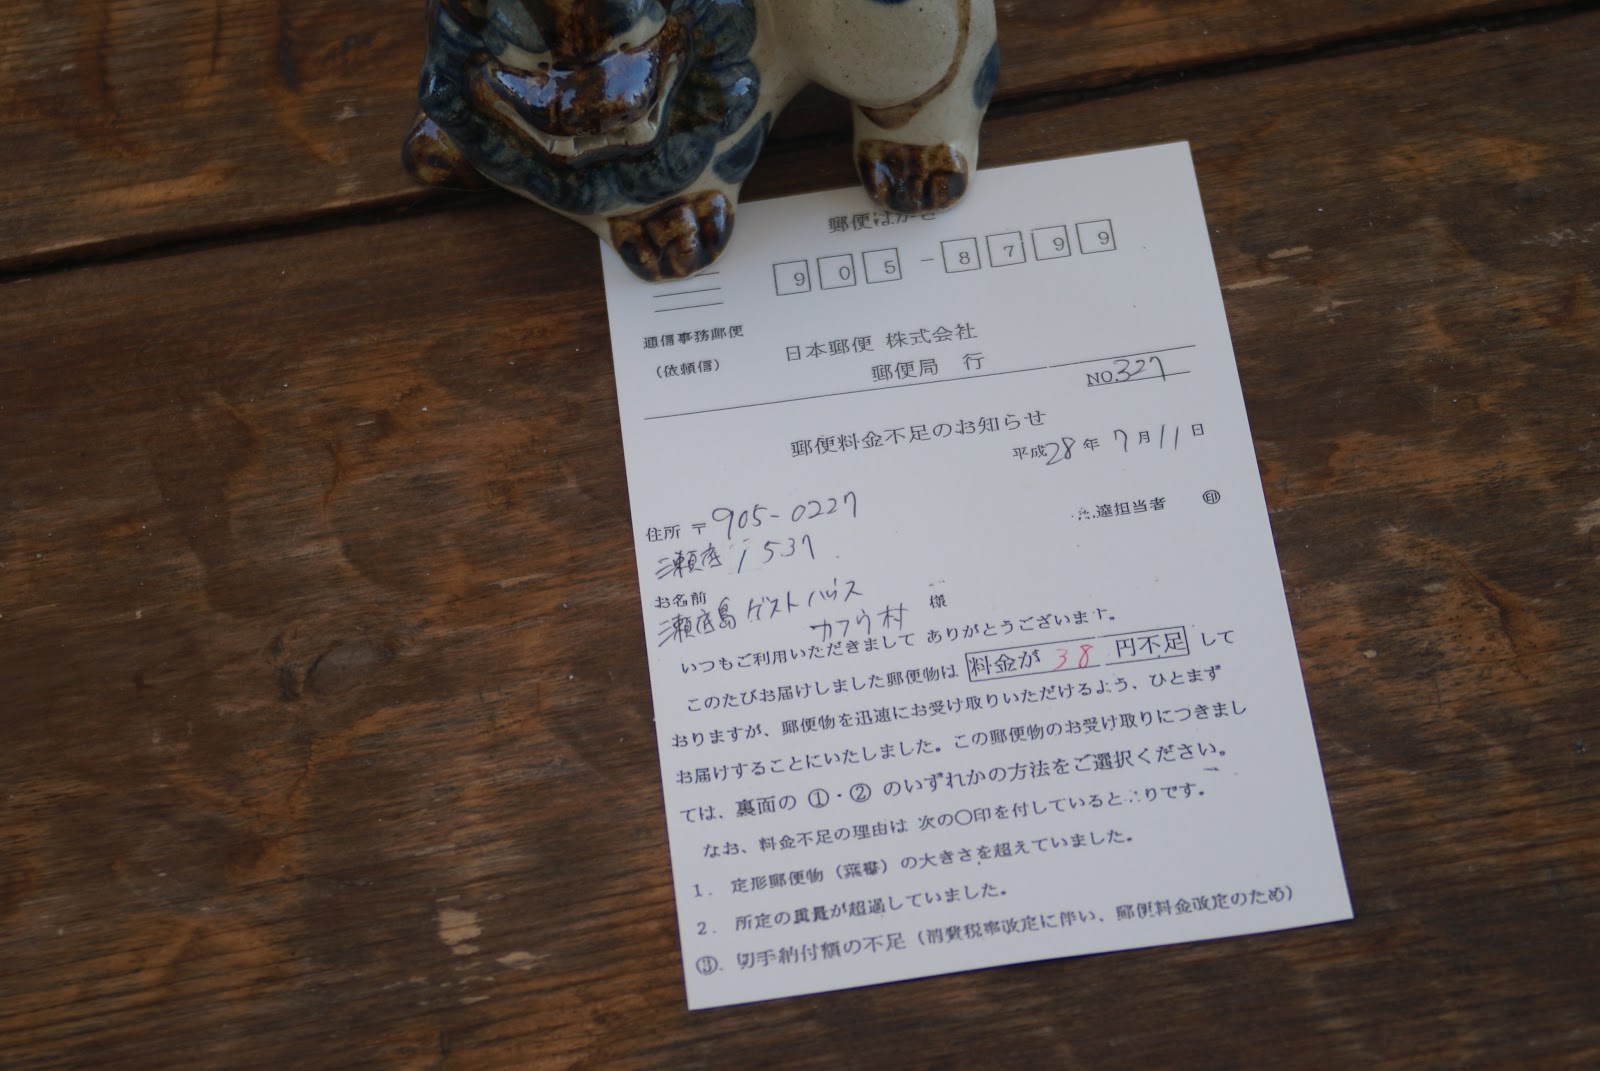 郵便はがき
905-8799
通信事務郵便
(依頼信)
日本郵便 株式会社
郵便局 行
NO.327
郵便料金不足のお知らせ
平成28年7月11日
住所 〒905-0227
瀬底 1537
達担当者 印
お名前
瀬底島 ゲストハウス
カフウ村 様
いつもご利用いただきまして ありがとうございます。
このたびお届けしました郵便物は 料金が 38 円不足 して
おりますが、郵便物を迅速にお受け取りいただけるよう、ひとまず
お届けすることにいたしました。この郵便物のお受け取りにつきまし
ては、裏面の ①・② のいずれかの方法をご選択ください。
なお、料金不足の理由は 次の〇印を付しているとおりです。
1. 定形郵便物(葉書)の大きさを超えていました。
2. 所定の重量が超過していました。
③. 切手納付額の不足(消費税率改定に伴い、郵便料金改定のため)